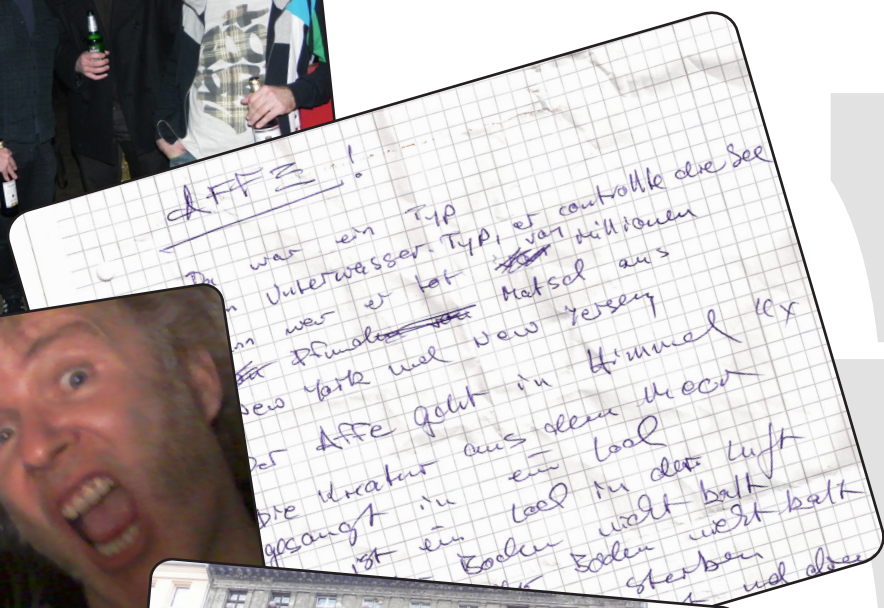 AFFE!
war ein Typ
Unterwasser-Typ, er controllte die See
war er tot von Millionen
Pfund Matsch aus
New York und New Jersey
Der Affe geht in Himmel 4x
Die Kreatur aus dem Meer
gesaugt in ein Loch
ist ein Loch in der Luft
Boden nicht halt
Boden nicht halt
sterben
und die